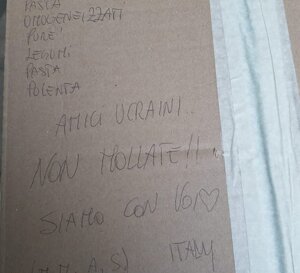 PASTA
OMOGENEIZZATI
PURE'
LEGUMI
PASTA
POLENTA
AMICI UCRAINI..
NON MOLLATE!!
SIAMO CON VOI♡
ITALY